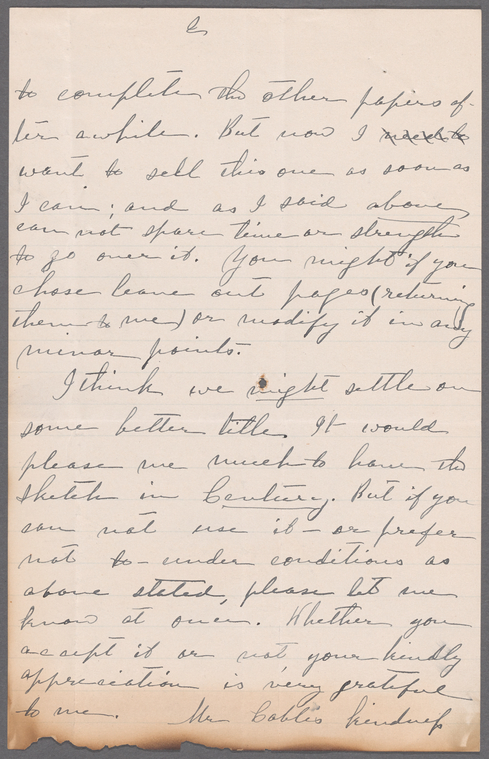 to complete the other papers af-
ter awhile. But now I need to
want to sell this one as soon as
I can; and as I said above,
can not spare time or strength
to go over it. You might if you
chose leave out pages (returning
them to me) or modify it in any
minor points.
I think we might settle on
some better title. It would
please me much to have the
sketch in Century. But if you
can not use it — or prefer
not to — under conditions as
above stated, please let me
know at once. Whether you
accept it or not your kindly
appreciation is very grateful
to me. Mr Cable's kindness